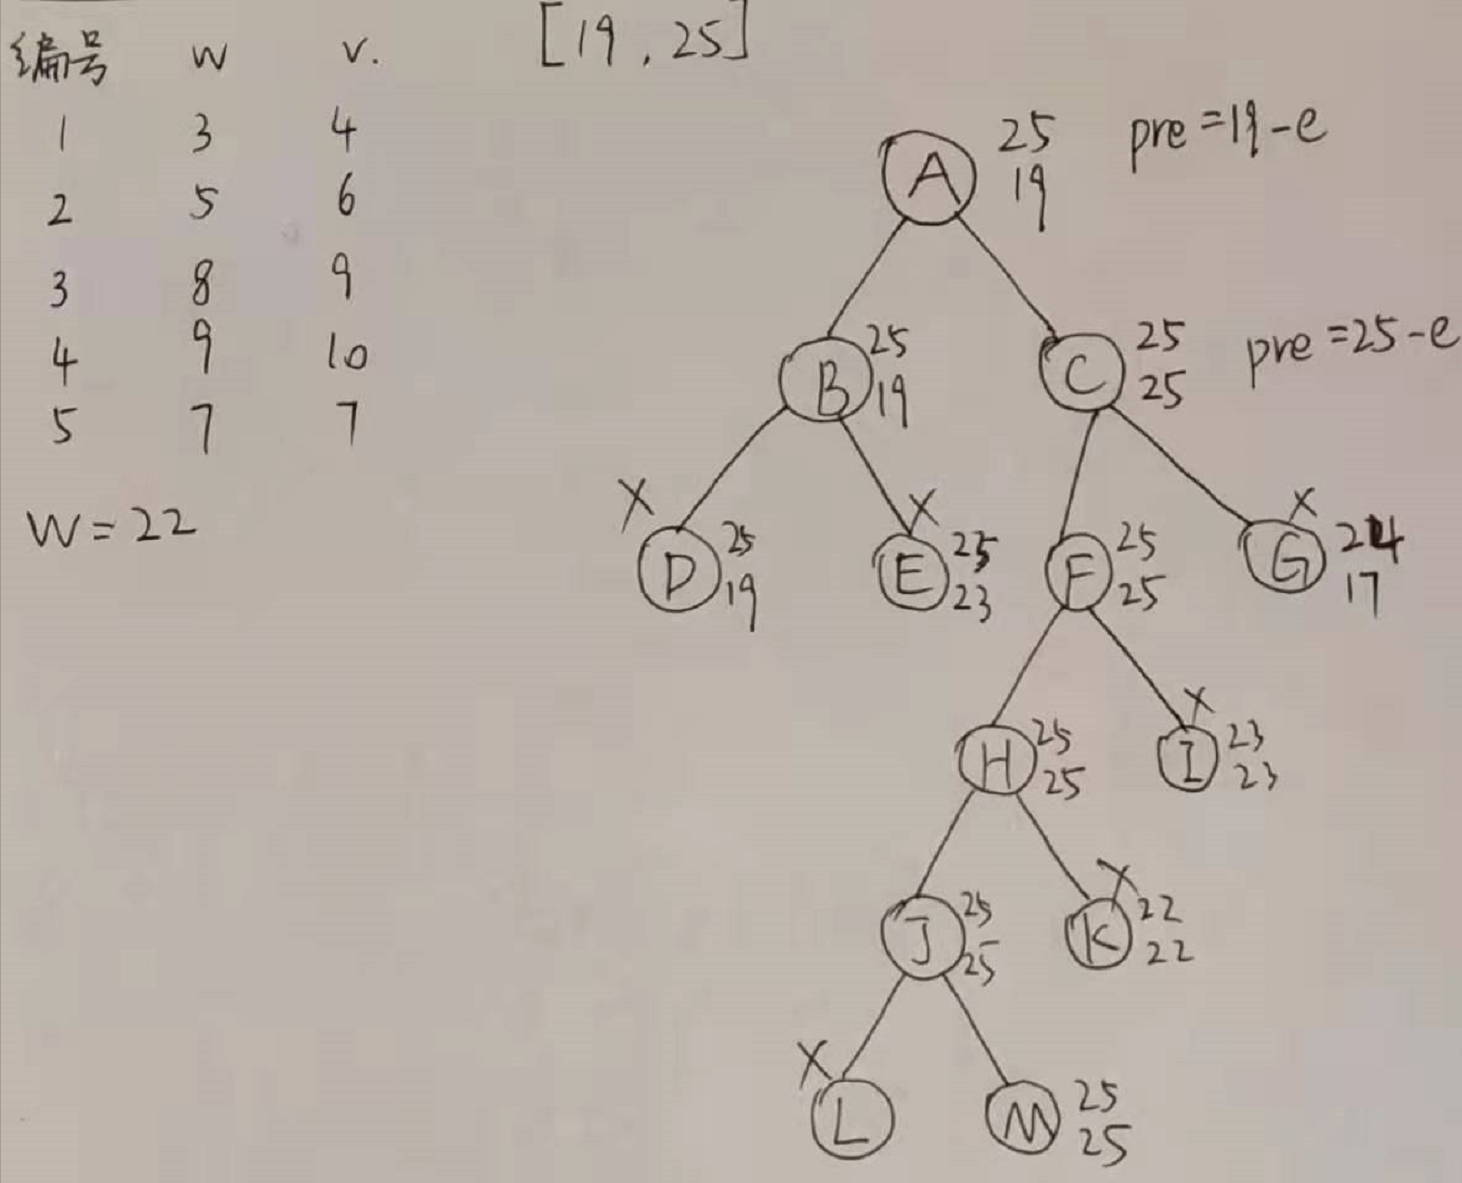 编号 w v.
1 3 4
2 5 6
3 8 9
4 9 10
5 7 7
W=22
[19, 25]
A 25 19 pre=19-e
B 25 19
C 25 25 pre=25-e
X D 25 19
X E 25 23
F 25 25
X G 24 17
H 25 25
X I 23 23
J 25 25
X K 22 22
X L
M 25 25